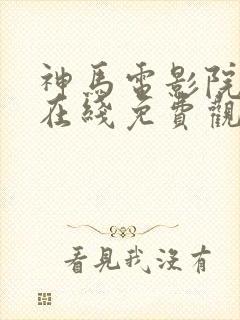 神馬電影院
在綫免費觀
看見我沒有